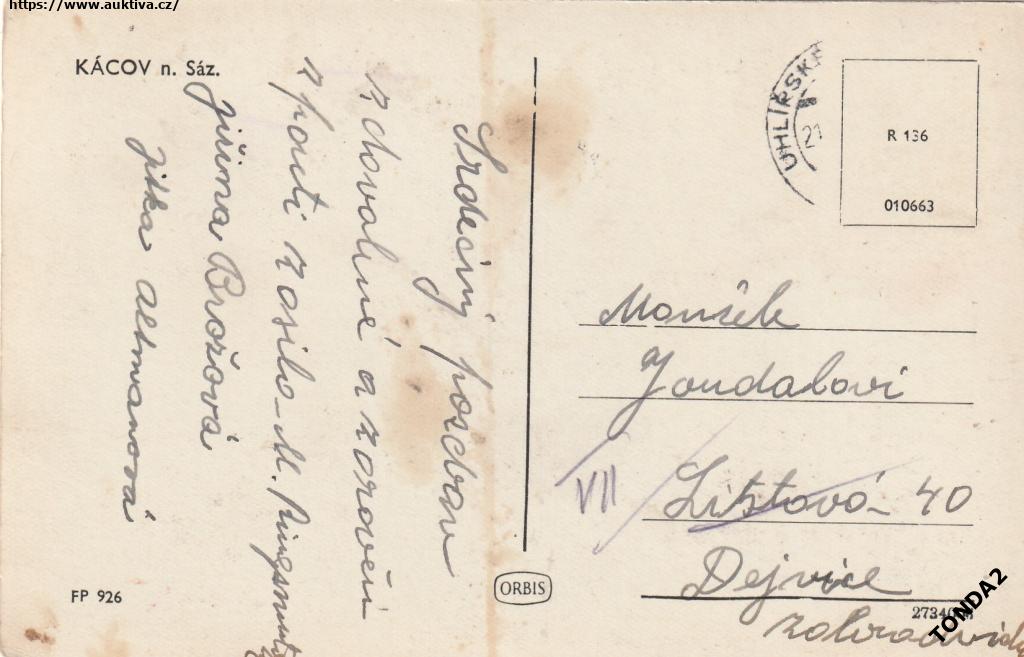 https://www.auktiva.cz/
KÁCOV n. Sáz.
Srdečný pozdrav
z dovolené a zároveň
z pouti zasílá M.
Jiřina Brožová
Jitka Altmanová
FP 926
ORBIS
UHLÍŘSKÉ
21
R 136
010663
Manželé
Joudalovi
VII
Lištová 40
Dejvice
TONDA2